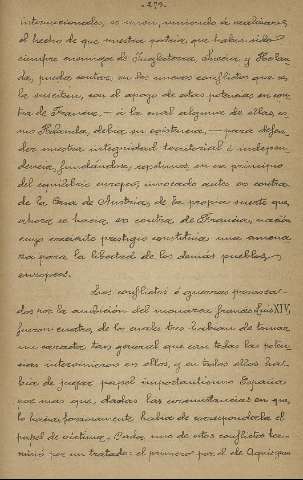 - 273 -
internacionales, se unen, viniendo a realizarse
el hecho de que nuestra patria, que había sido
siempre enemiga de Inglaterra, Suecia y Holan-
da, pueda contar, en los nuevos conflictos que se
la susciten, con el apoyo de estas potencias en con-
tra de Francia, — á la cual alguna de ellas, co-
mo Holanda, debía su existencia, — para defen-
der nuestra integridad territorial é indepen-
dencia, fundándose, repetimos, en ese principio
del equilibrio europeo, invocado antes en contra
de la Casa de Austria, de la propia suerte que
ahora se hacía en contra de Francia, nación
cuyo excesivo prestigio constituía una amena-
za para la libertad de los demás pueblos
europeos.
Los conflictos ó guerras provoca-
dos por la ambición del monarca francés Luis XIV,
fueron cuatro, de los cuales tres habían de tomar
un carácter tan general que casi todas las poten-
cias intervinieron en ellos, y en todos ellos ha-
bía de jugar papel importantísimo España
por más que, dadas las circunstancias en que
lo hacía, forzosamente había de corresponderla el
papel de víctima. Cada uno de estos conflictos ter-
minó por un tratado: el primero por el de Aquisgran